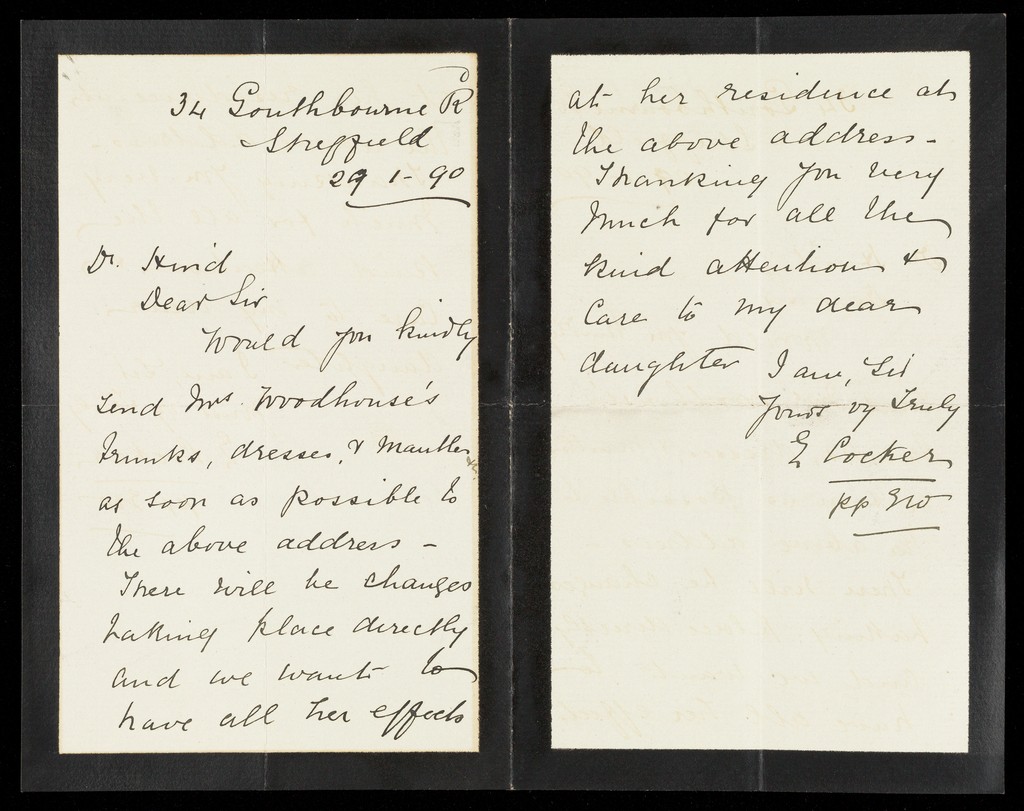 34 Southbourne Rd
Sheffield
29 1- 90
Dr. Hind
Dear Sir
Would you kindly
send Mrs. Woodhouse's
trunks, dresses, & Mantles &c
as soon as possible to
the above address -
There will be changes
taking place directly
and we want to
have all her effects
at her residence at
the above address -
Thanking you very
much for all the
kind attention &
Care to my dear
daughter I am, Sir
Yours vy Truly
E Cocker
pp